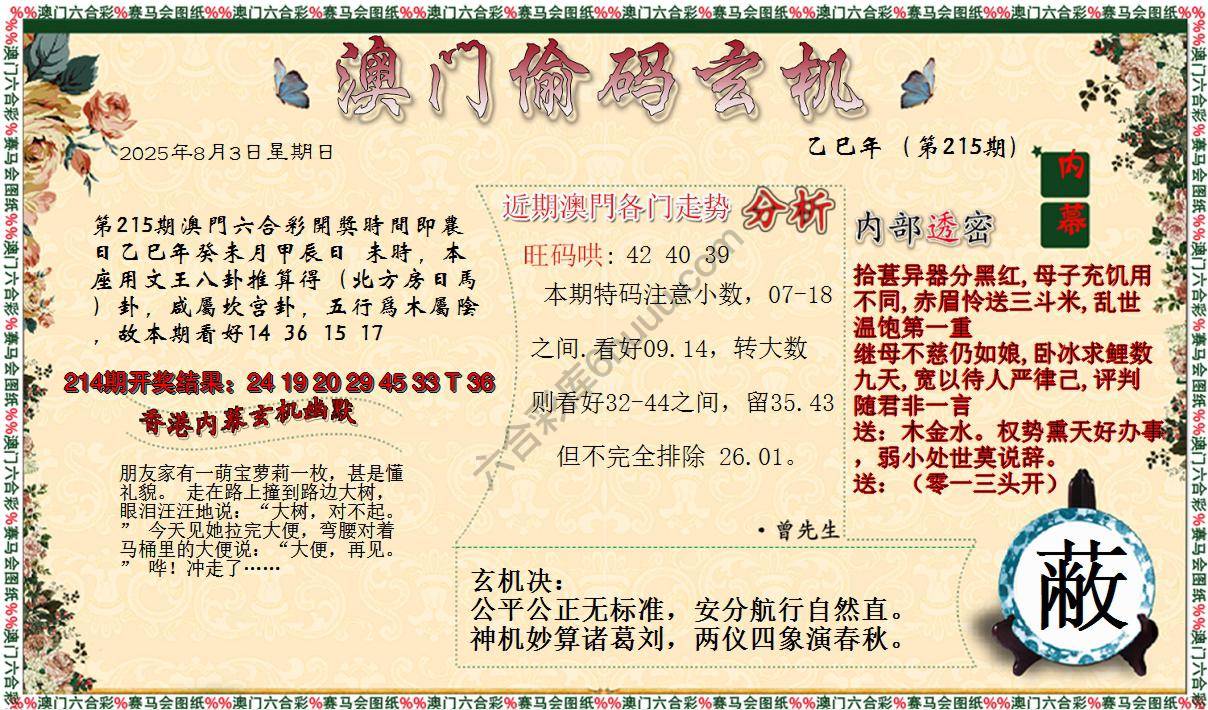 %%澳门六合彩%赛马会图纸%%澳门六合彩%赛马会图纸%%澳门六合彩%赛马会图纸%%澳门六合彩%赛马会图纸%%澳门六合彩%赛马会图纸%%澳门六合彩%赛马会图纸
澳门偷码玄机
2025年8月3日星期日
乙巳年（第215期）
内
幕
第215期澳門六合彩開獎時間即農
日乙巳年癸未月甲辰日 未時，本
座用文王八卦推算得（北方房日馬
）卦，咸屬坎宫卦，五行爲木屬陰
，故本期看好14 36 15 17
214期开奖结果：24 19 20 29 45 33 T 36
香港内幕玄机幽默
朋友家有一萌宝萝莉一枚，甚是懂
礼貌。 走在路上撞到路边大树，
眼泪汪汪地说：“大树，对不起。
” 今天见她拉完大便，弯腰对着
马桶里的大便说：“大便，再见。
” 哗！冲走了……
近期澳門各门走势 分析
旺码哄: 42 40 39
本期特码注意小数，07-18
之间.看好09.14，转大数
则看好32-44之间，留35.43
但不完全排除 26.01。
·曾先生
内部透密
拾葚异器分黑红,母子充饥用
不同,赤眉怜送三斗米,乱世
温饱第一重
继母不慈仍如娘,卧冰求鲤数
九天,宽以待人严律己,评判
随君非一言
送：木金水。权势熏天好办事
，弱小处世莫说辞。
送：（零一三头开）
玄机决：
公平公正无标准，安分航行自然直。
神机妙算诸葛刘，两仪四象演春秋。
蔽
%%澳门六合彩%赛马会图纸%%澳门六合彩%赛马会图纸%%澳门六合彩%赛马会图纸%%澳门六合彩%赛马会图纸%%澳门六合彩%赛马会图纸%%澳门六合彩%赛马会图纸